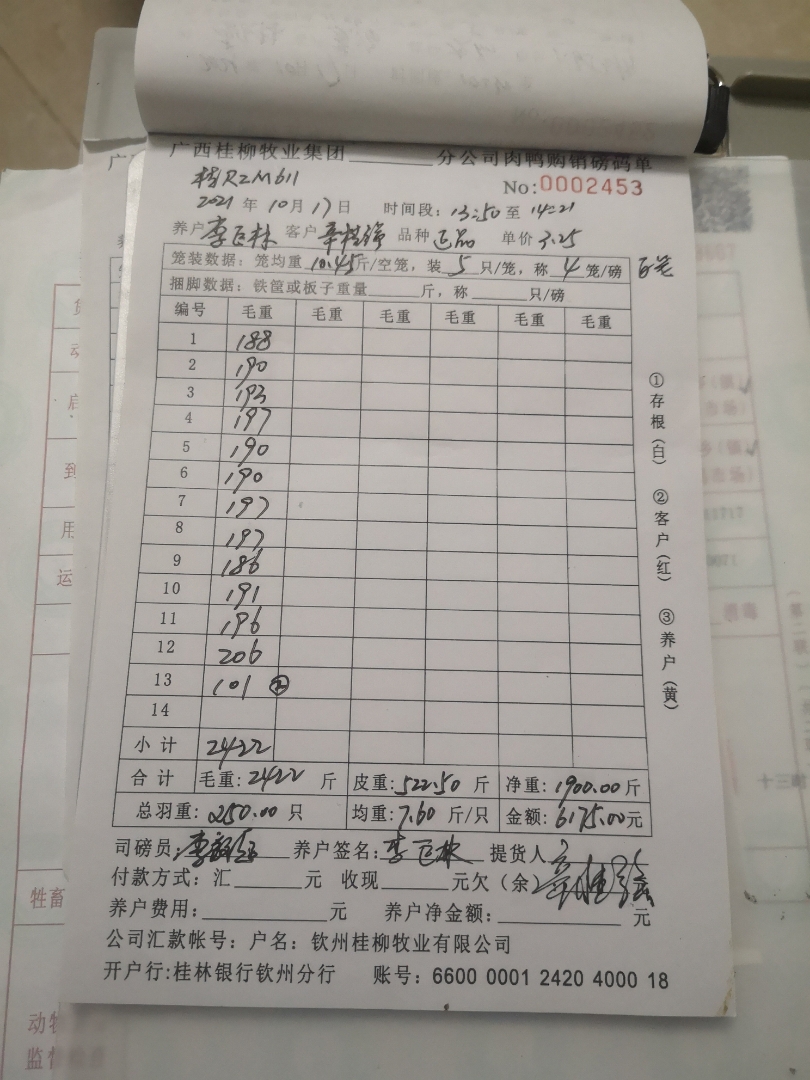 广西桂柳牧业集团________分公司肉鸭购销磅码单
桂RZM611
No:0002453
2021年10月17日 时间段:13:50至14:21
养户李巨林 客户 品种正品 单价3.25
笼装数据:笼均重10.45斤/空笼,装5只/笼,称4笼/磅
捆脚数据:铁筐或板子重量______斤,称______只/磅
编号 毛重 毛重 毛重 毛重 毛重 毛重
1 188
2 190
3 193
4 197
5 190
6 190
7 197
8 197
9 186
10 191
11 196
12 206
13 101 ②
14
小计 2422
合计 毛重:2422斤 皮重:522.50斤 净重:1900.00斤
总羽重:250.00只 均重:7.60斤/只 金额:6175.00元
司磅员: 养户签名:李巨林 提货人
付款方式:汇______元 收现______元欠(余)
养户费用:____________元 养户净金额:____________元
公司汇款帐号:户名:钦州桂柳牧业有限公司
开户行:桂林银行钦州分行 账号:6600 0001 2420 4000 18
①存根(白) ②客户(红) ③养户(黄)